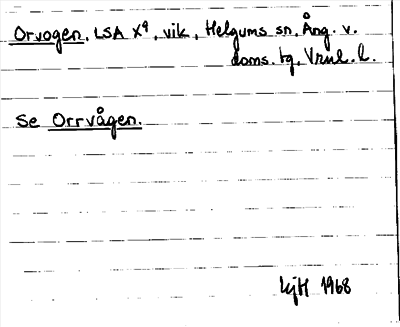 Orvogen, LSA X⁹, vik, Helgums sn, Ång. v.
doms. tg, Vrnl. l.
Se Orrvågen.
LjH 1968